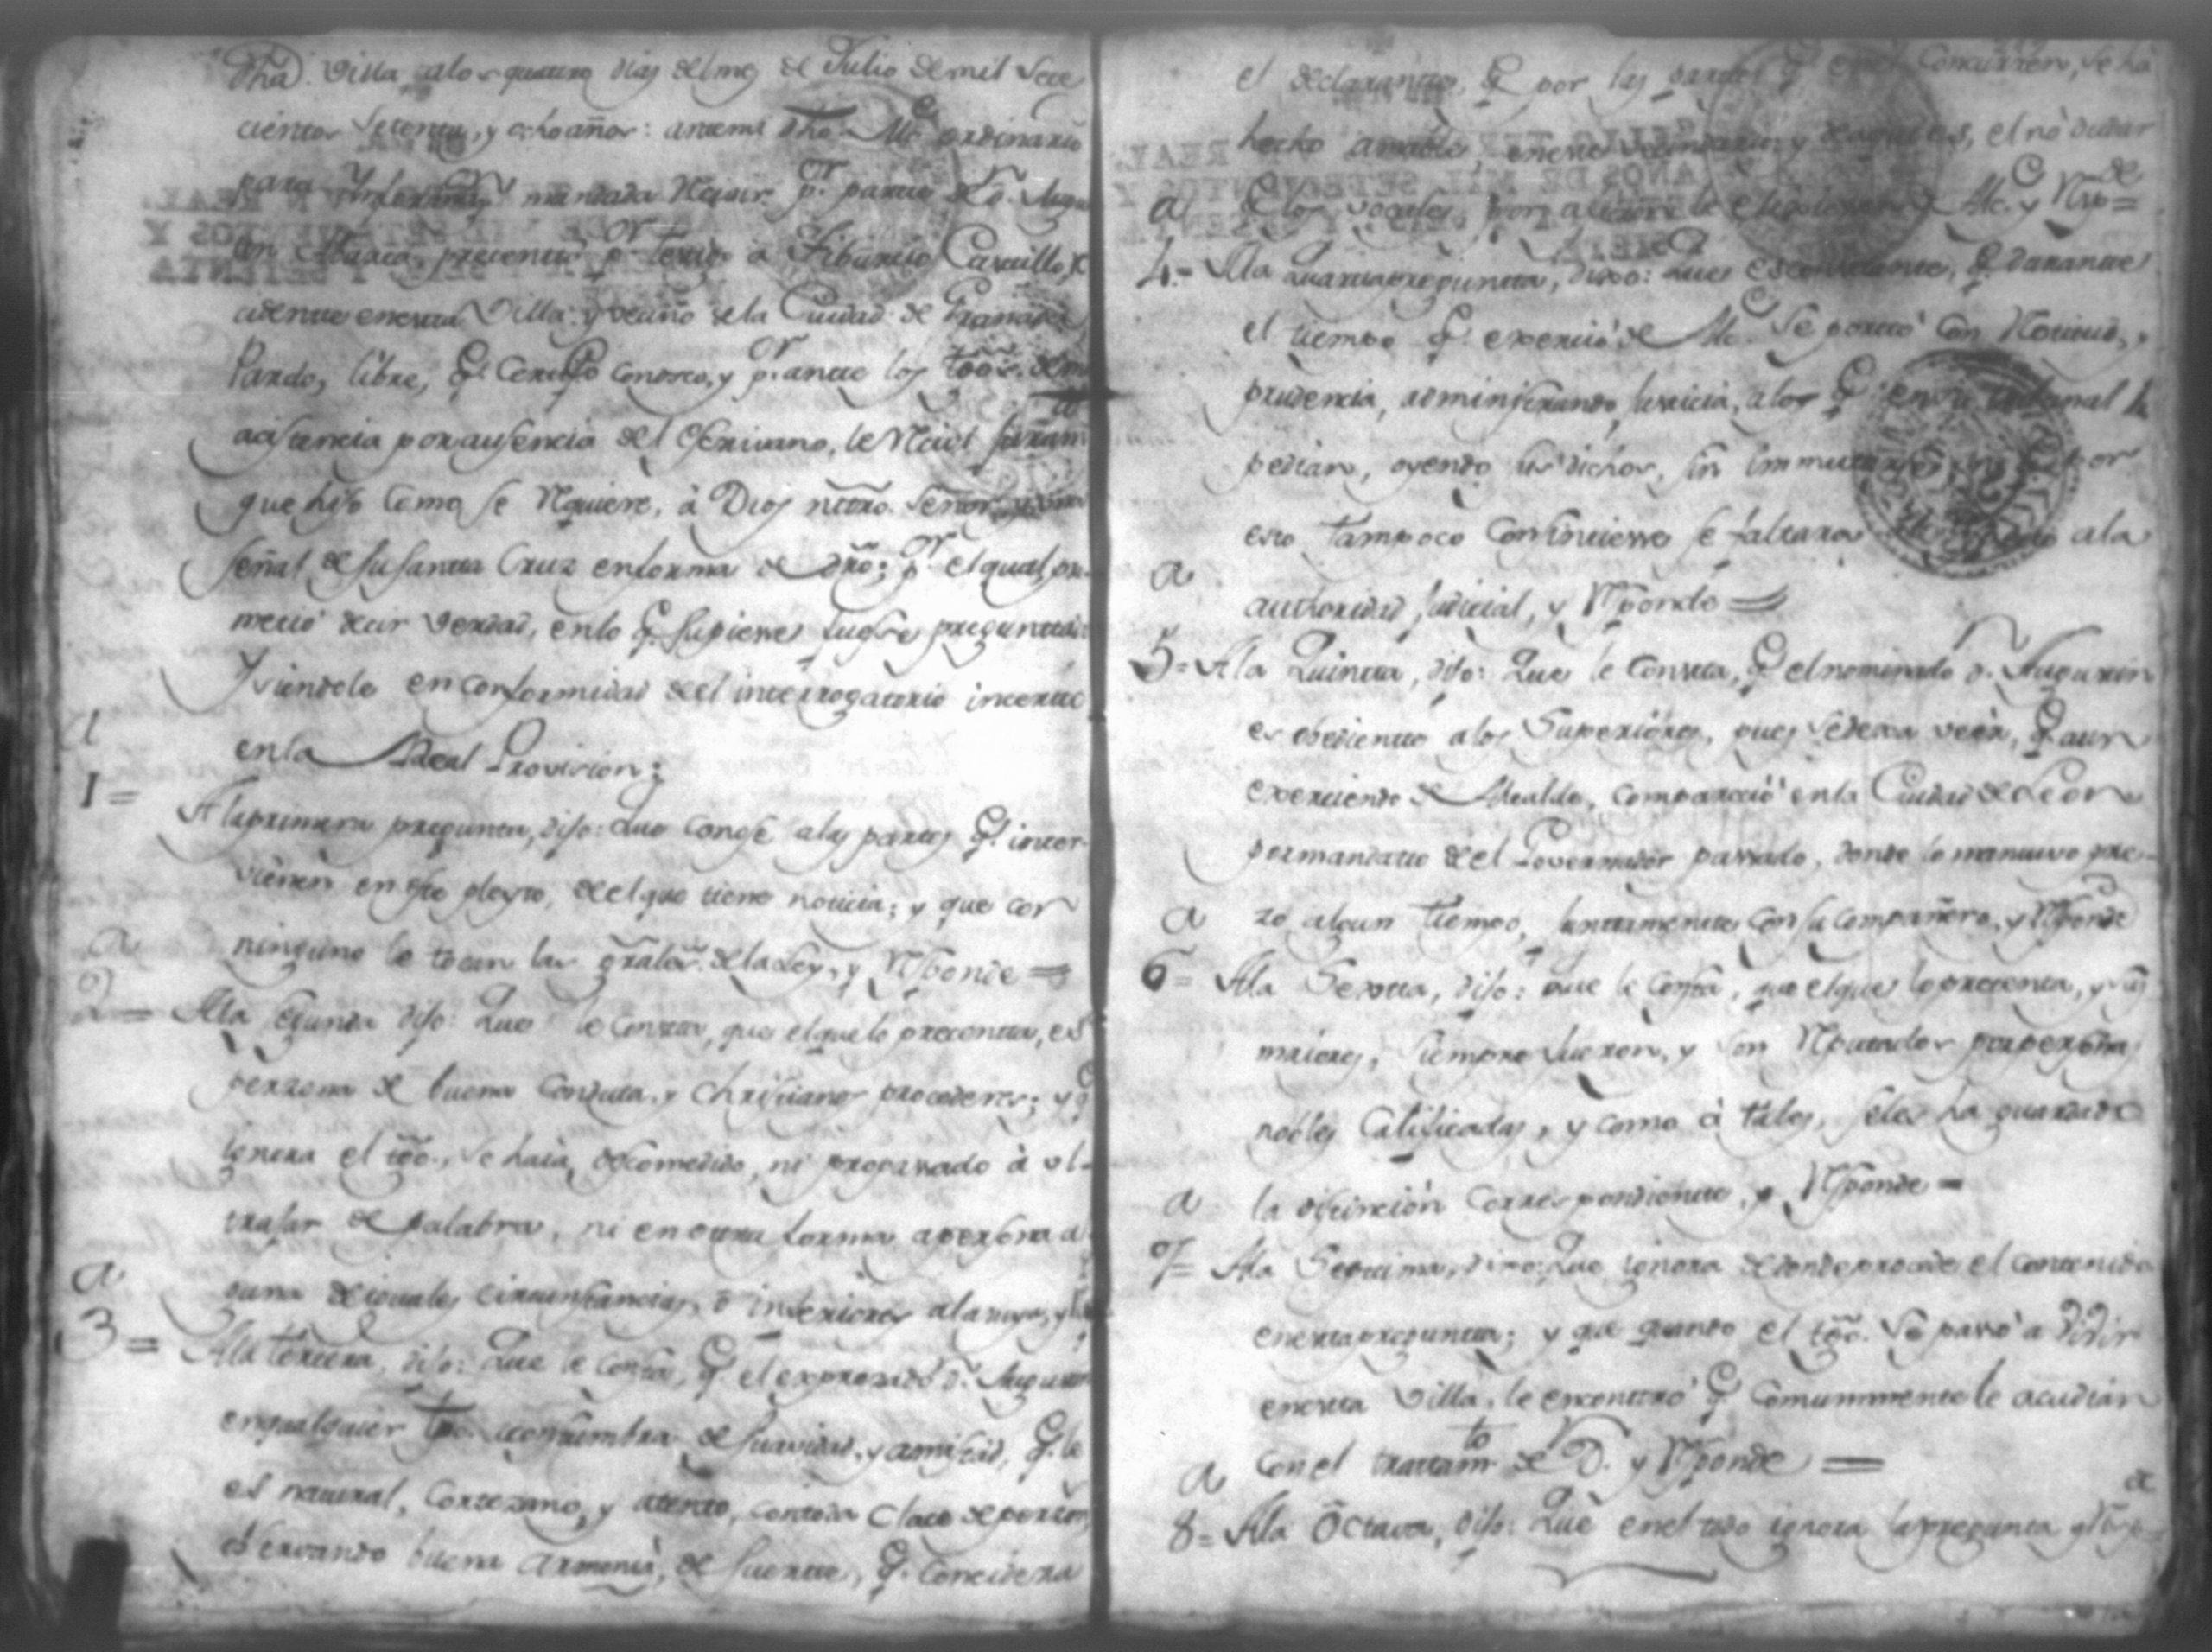 Dha. Villa, alos quatro dias del mes de Julio de mil sete
cientos setenta, y ocho años: antemi dho Alce. ordinario
para Ynformn. mandada Recivir pr. parte de Dn. Augus
tin Abarca, precentó pr. testigo à Tiburcio Carrillo, R
cidente enesta Villa, y vecino de la Ciudad de Granada
Pardo, libre, q. Certifico conosco, y pr. ante los tgos. de mi
acistencia por ausencia del Escrivano, le Recivi juram
que hiso como se Requiere, à Dios nttro. Señor, y una
señal de su santa Cruz en forma de dro; pr. el qual, pro-
metió decir verdad, en lo q. supiere, y fuere preguntado
Y siendolo en conformidad del interrogatorio incerto
en la Real Provicion;
1= A la primera pregunta, dijo: Que conoce alas partes q. inter-
vienen en este pleyto, de el que tiene noticia; y que con
ninguno le tocan las grales. de la Ley, y Rponde =
2= Ala segunda dijo: Que le consta, que el que lo precenta, es
perzona de buena conducta, y christianos procederes; y q
ignora el tgo., se haia descomedido, ni propassado à ul-
trajar de palabra, ni en otra forma a persona al
guna de iguales circunstancias, ò inferiores ala suya, y
3= Ala tercera, dijo: Que le consta, q. el expresado Dn. Augustin
en qualquier tpo. acostumbra de suavidad, y amistad, q. le
es natural, cortezano, y atento, con toda clace de personas,
observando buena armonia, de suerte, q. concidera
el declarante, q. por las partes q. en el concurren, se ha
hecho amable, en este vecindario, y de aqui es, el no dudar
q. los vocales, por algo le eligieron de Alce. y Rpde=
4= Ala Quarta pregunta, dixo: Que es constante, q. durante
el tiempo q. exerció de Alce. se portó con Rectitud, y
prudencia, administrando justicia, alos q. en su tribunal la
pedian, oyendo sus dichos, sin inmutarse, ni por
esto tampoco consintiesse se faltara el respecto ala
authoridad judicial, y Rponde =
5= Ala Quinta, dijo: Que le consta, q. el nominado Dn. Augustin
es obediente alos Superiores, pues se dexa veèr, q. aun
exerciendo de Alcalde, compareció en la Ciudad de Leon
por mandatto de el Governador passado, donde lo mantuvo pre-
zo algun tiempo, juntamente con su compañero, y Rponde
6= Ala Sexta, dijo: que le consta, que el que lo precenta, y sus
maiores, siempre fueron, y son Rputados por personas
nobles calificadas, y como à tales, seles ha guardado
la distincion correspondiente, y Rponde =
7= Ala Septima, dixo: Que ignora de donde procede el contenido
en esta pregunta; y que quando el tgo. se passó a vivir
en esta Villa, le encontró q. comunmente le acudian
con el trattamto. de Dn. y Rponde =
8= Ala Octava, dijo: Què en el todo ignora la pregunta y Rpde